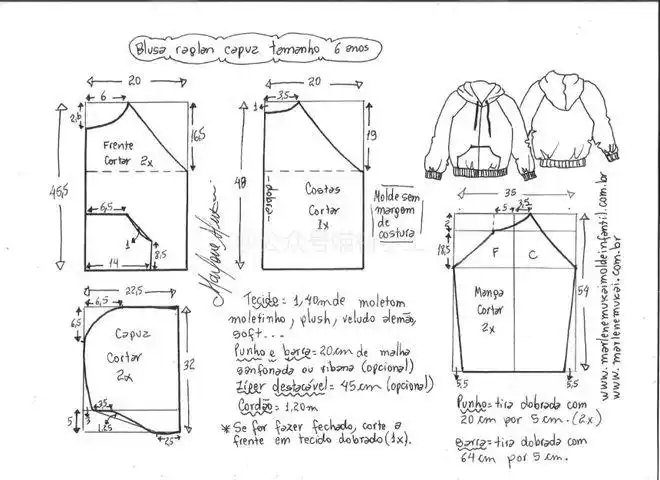 Blusa raglan capuz tamanho 6 anos
20
6
2,6
16,5
45,5
Frente
Cortar 2x
6,5
1
8,5
14
20
3,5
1
19
48
-dobra-
Costas
Cortar
1x
Molde sem
margem
de
costura
35
5
3,5
18,5
F
C
54
Manga
Cortar
2x
5,5
5,5
22,5
6,5
6,5
Capuz
Cortar
2x
32
5
3
3,5
1,25
2,5
Tecido = 1,40m de moletom
moletinho, plush, veludo alemão,
soft...
Punho e barra = 20 cm de malha
sanfonada ou ribana (opcional)
Zíper destacável = 45 cm (opcional)
Cordão = 1,20m
* Se for fazer fechado, corte a
frente em tecido dobrado (1x).
Punho = tira dobrada com
20 cm por 5 cm. (2x)
Barra = tira dobrada com
64 cm por 5 cm.
www.marlenemukaimoldeinfantil.com.br
www.marlenemukai.com.br
Marlene Mukai